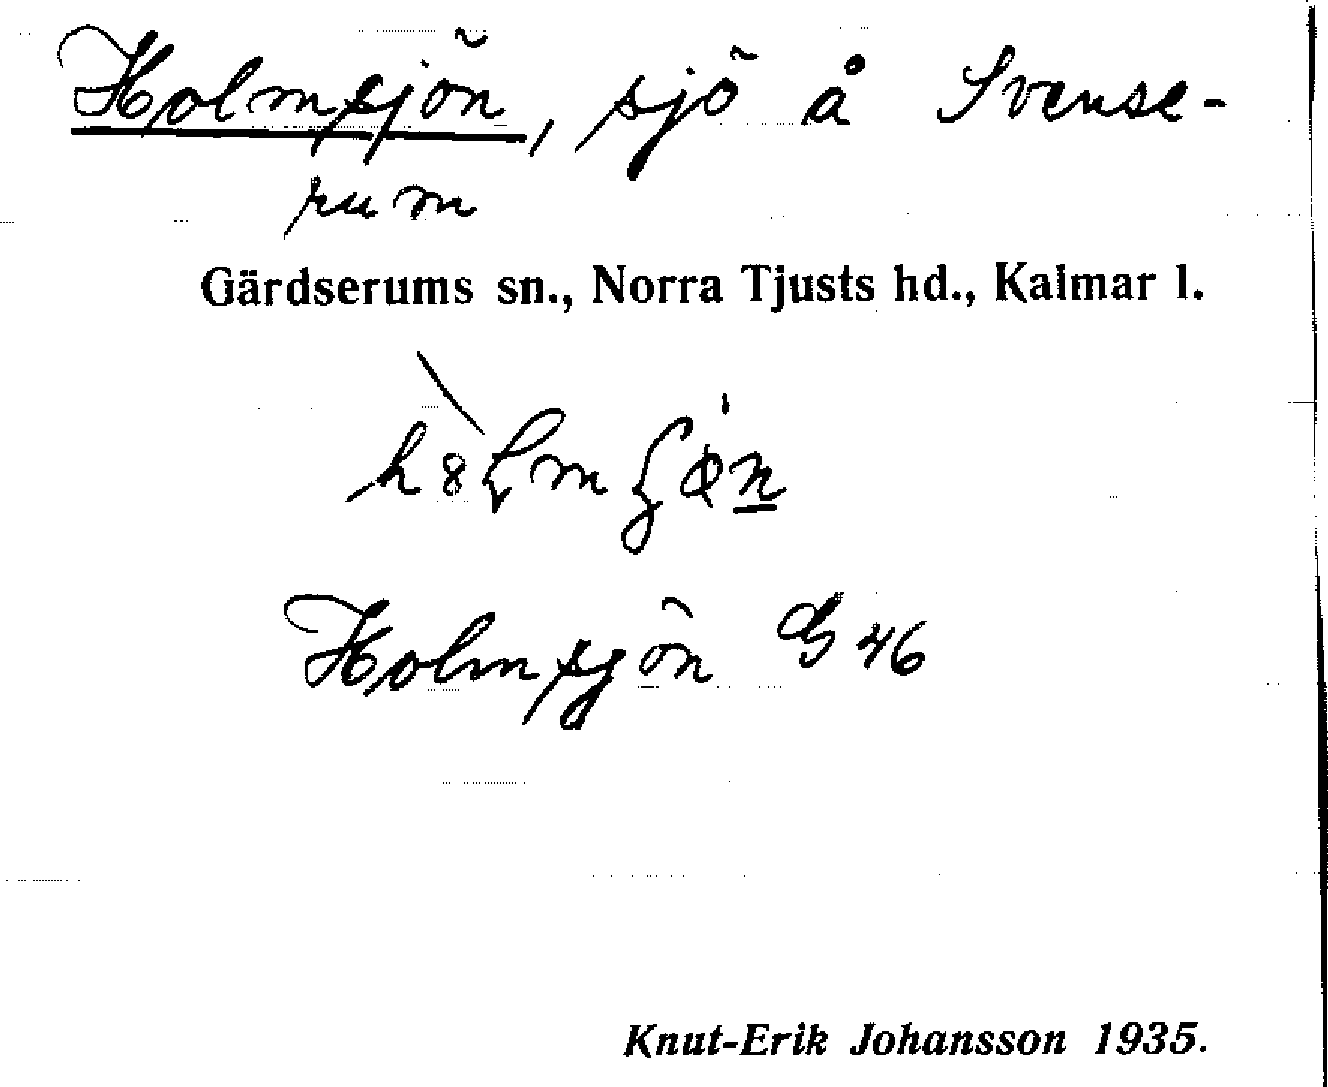 Holmsjön, sjö å Svense-
rum
Gärdserums sn., Norra Tjusts hd., Kalmar l.
Holmsjön G 46
Knut-Erik Johansson 1935.